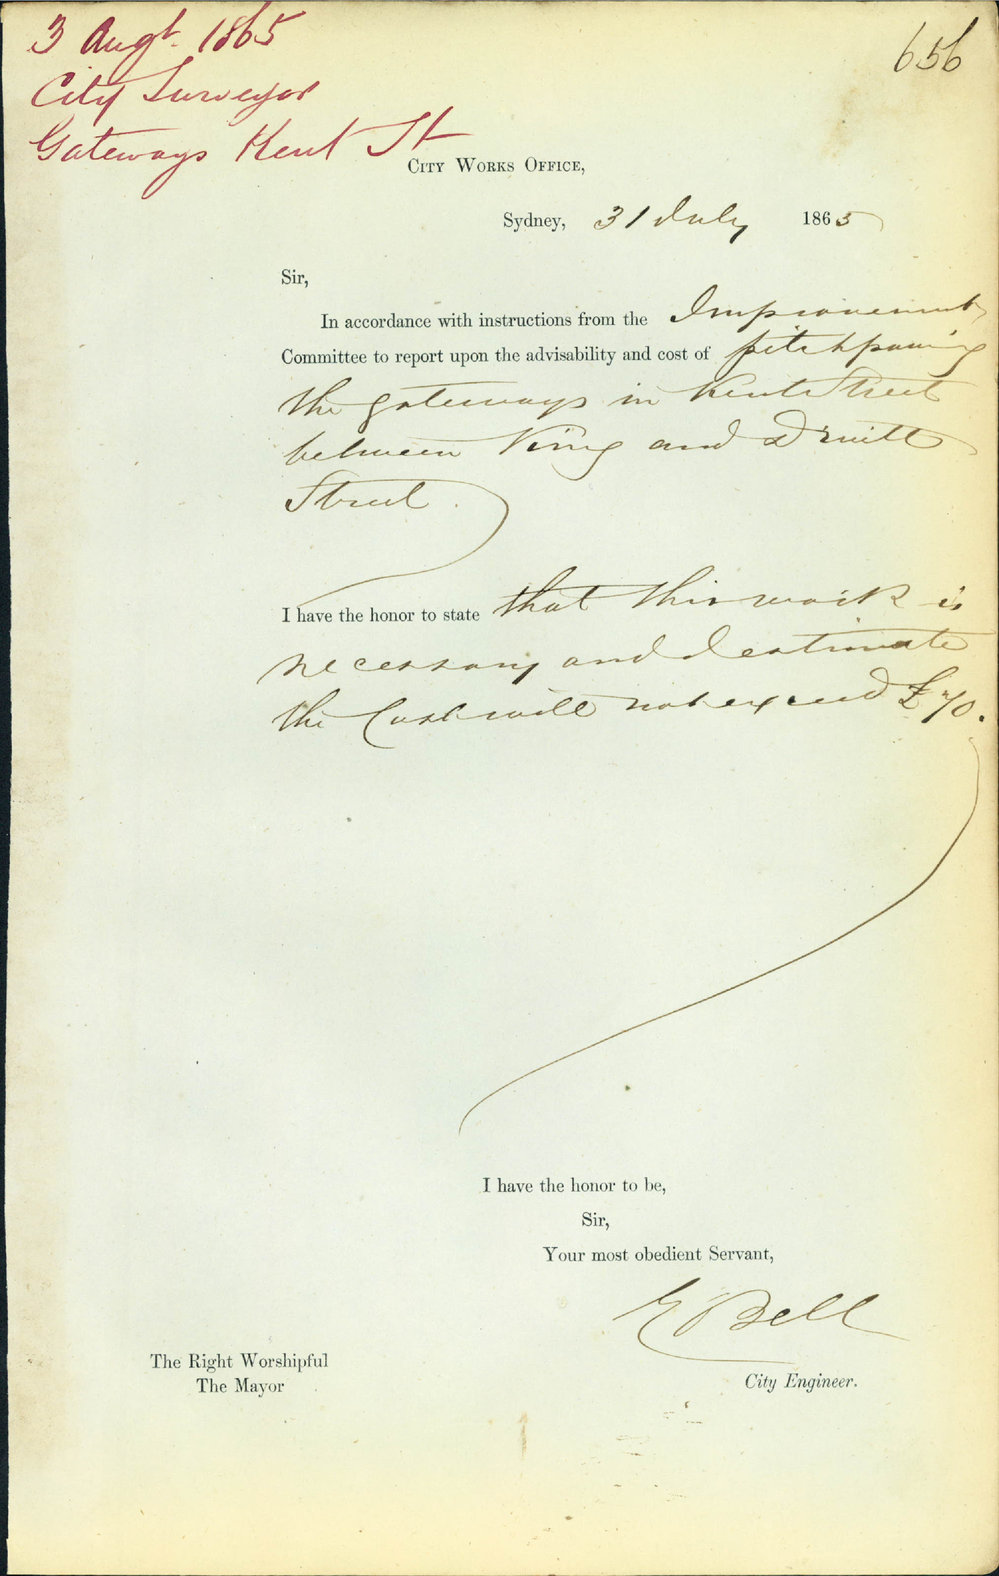 3 Augt. 1865
City Surveyor
Gateways Kent St
656
City Works Office,
Sydney, 31 July 1865
Sir,
In accordance with instructions from the Improvement
Committee to report upon the advisability and cost of pitchpaving
the gateways in Kent Street
between King and Druitt
Street.
I have the honor to state that this work is
necessary and I estimate
the Cost will not exceed £70.
I have the honor to be,
Sir,
Your most obedient Servant,
E Bell
City Engineer.
The Right Worshipful
The Mayor